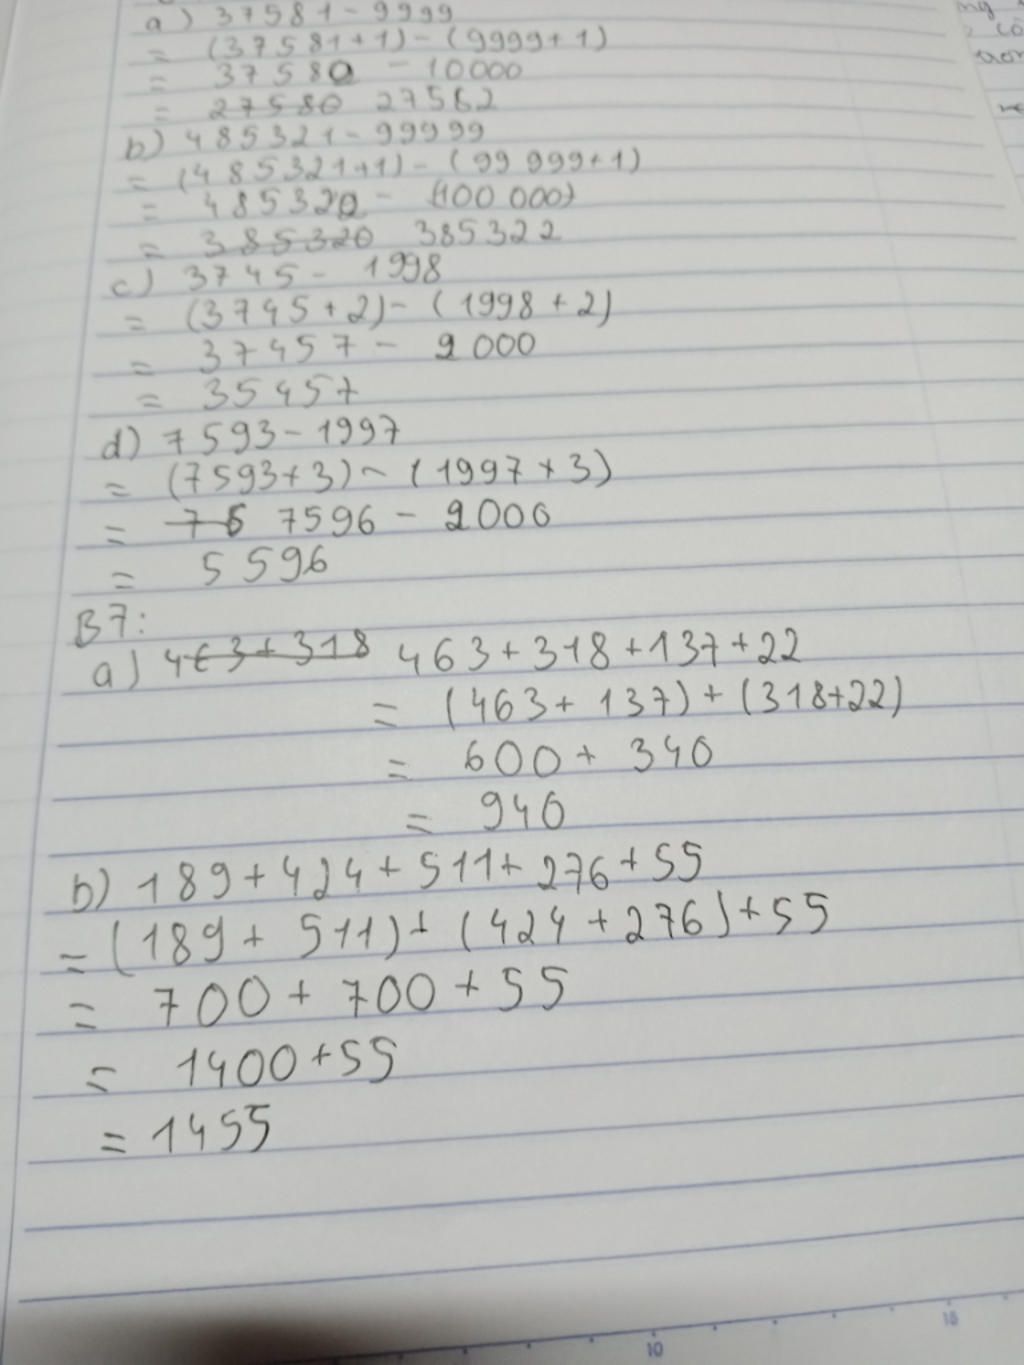 a) 37581 - 9999
= (37581+1) - (9999+1)
= 37582 - 10000
= 27580 27582
b) 485321 - 99999
= (485321+1) - (99 999+1)
= 485322 - (100 000)
= 385320 385322
c) 3745 - 1998
= (3745 + 2) - (1998 + 2)
= 37457 - 2000
= 35457
d) 7593 - 1997
= (7593+3) - (1997 + 3)
= 75 7596 - 2000
= 5596
B7:
a) 463 + 318 463 + 318 + 137 + 22
= (463 + 137) + (318+22)
= 600 + 340
= 940
b) 189 + 424 + 511 + 276 + 55
= (189 + 511) + (424 + 276) + 55
= 700 + 700 + 55
= 1400 + 55
= 1455
10